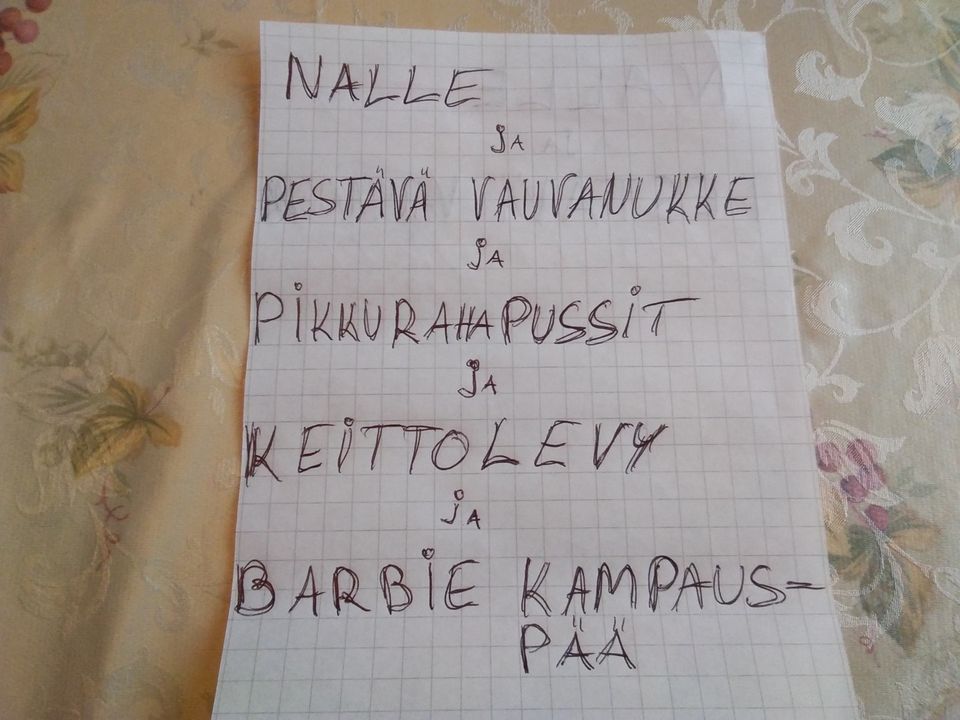 NALLE
jA
PESTÄVÄ VAUVANUKKE
jA
PiKKURAHAPUSSiT
jA
KEiTTOLEVY
jA
BARBiE KAMPAUS=
PÄÄ